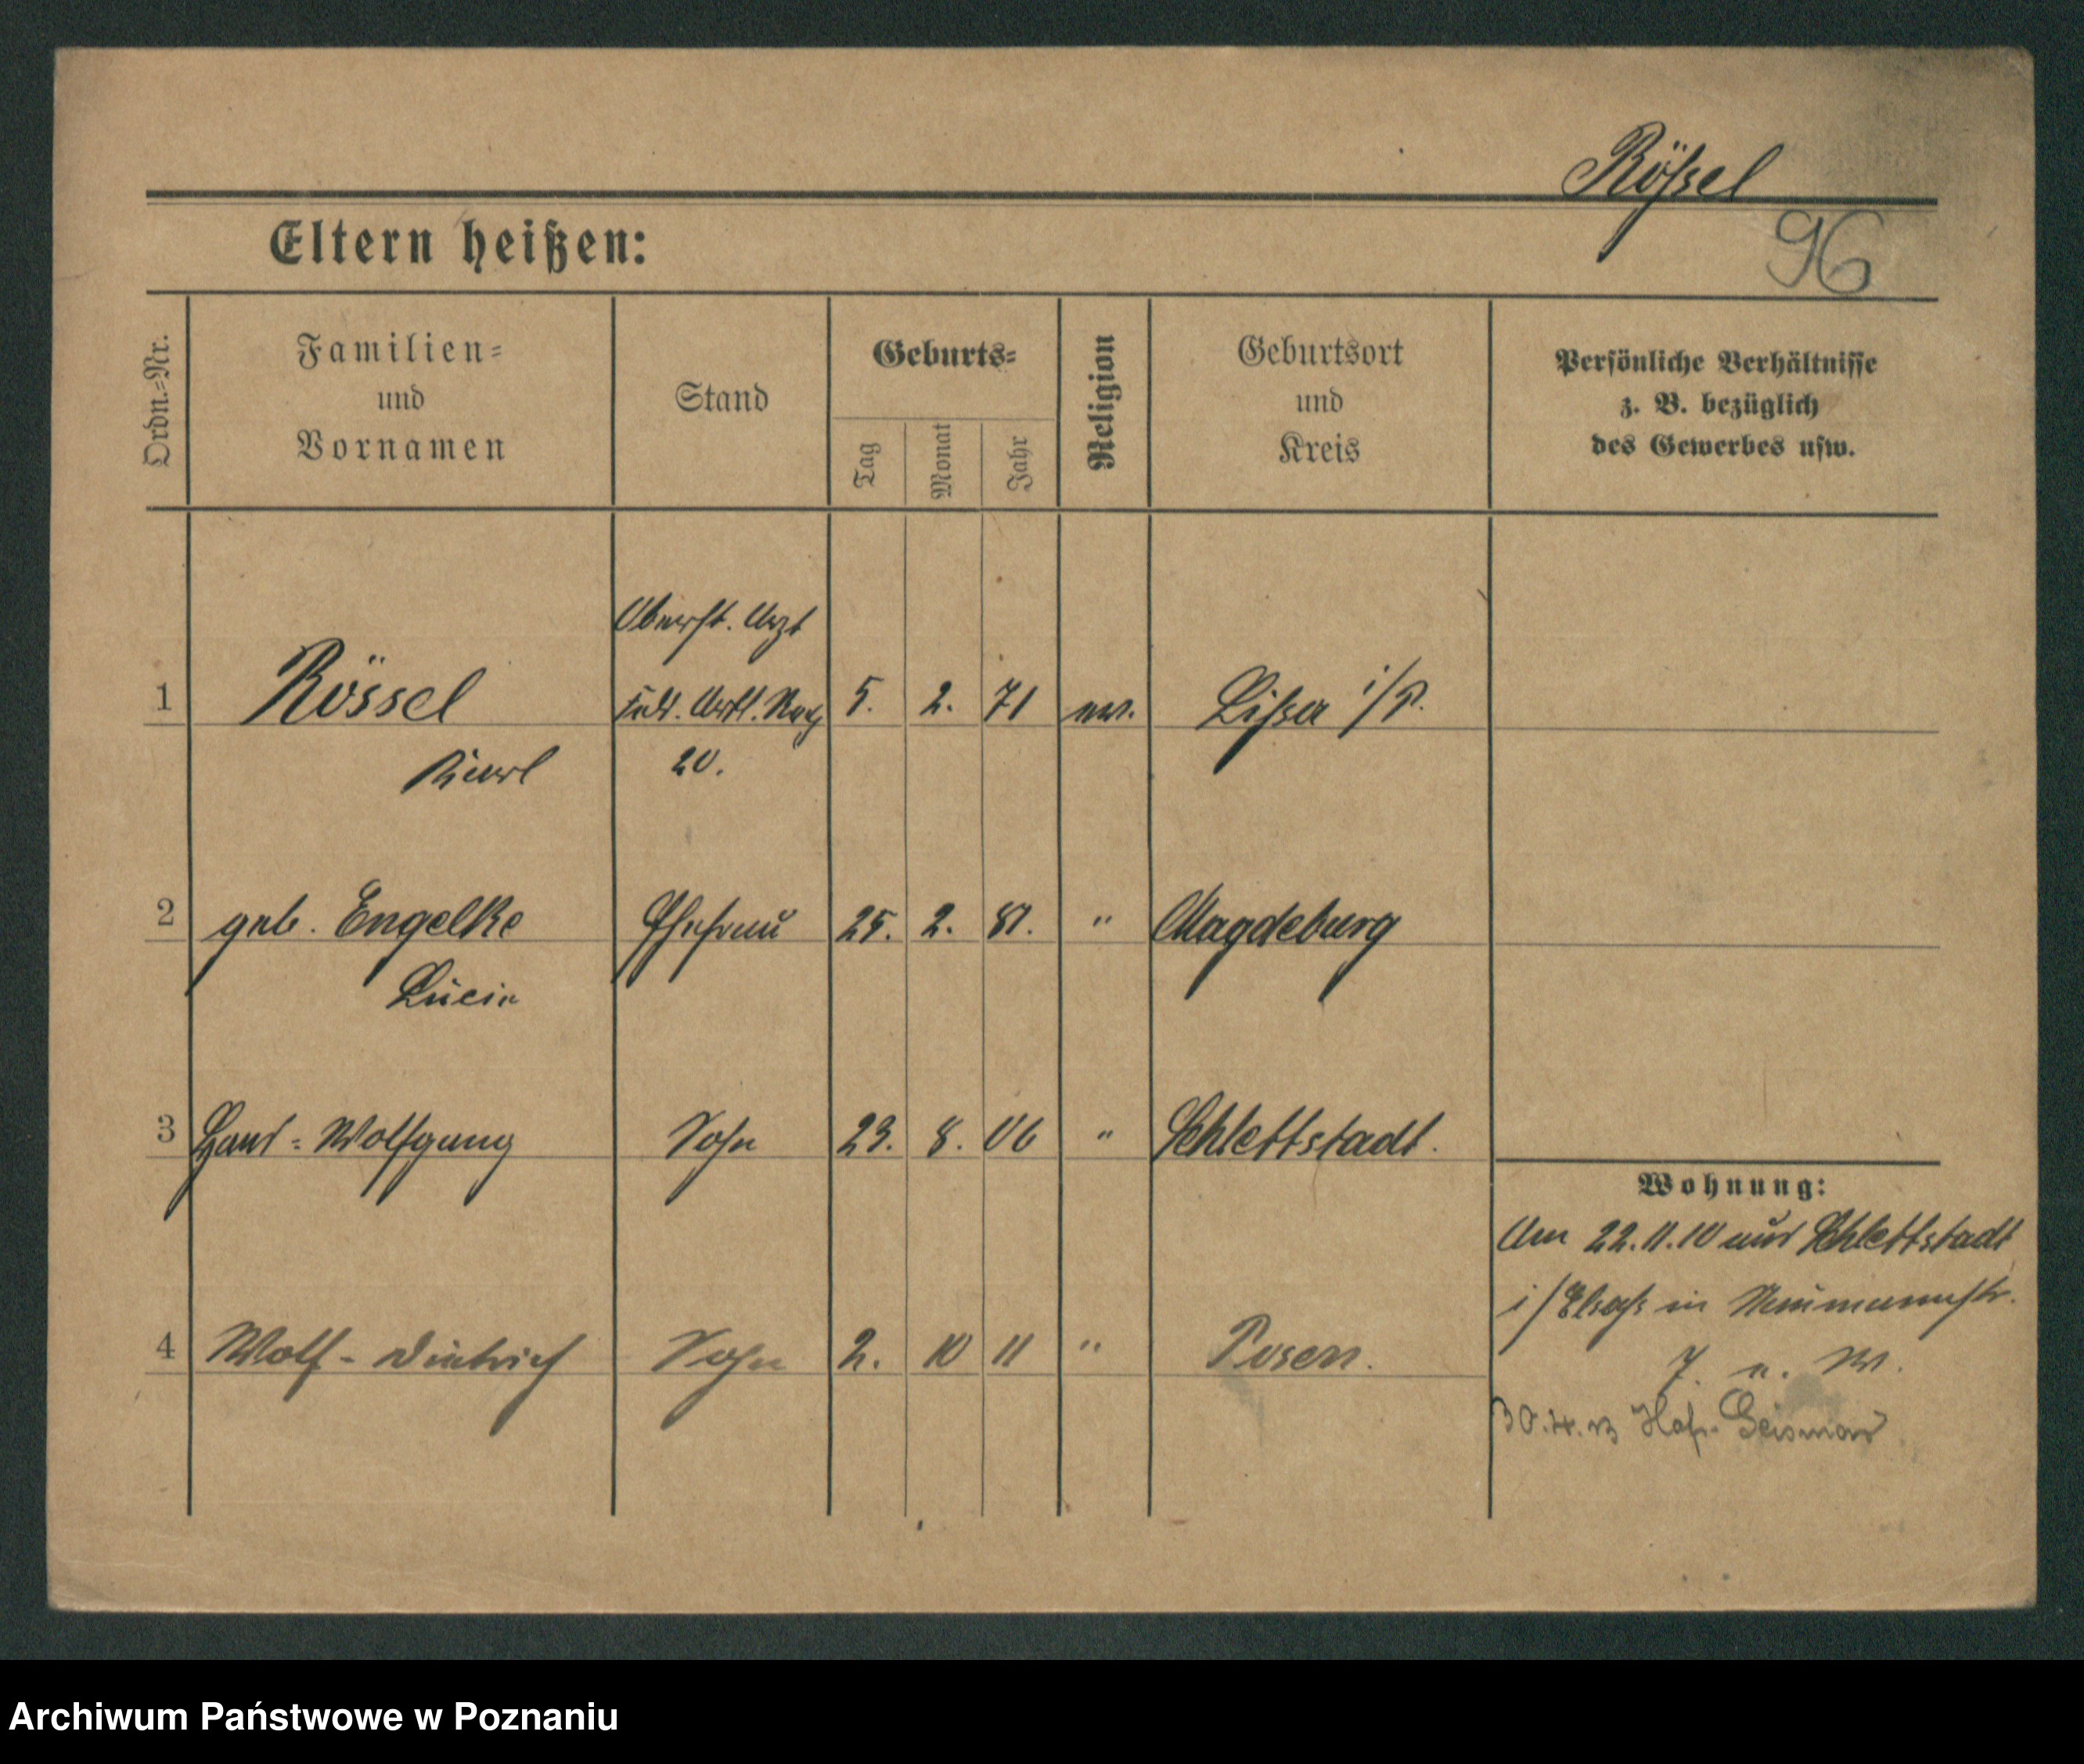 Rössel
96
Eltern heißen:
Ordn.-Nr.
Familien-
und
Vornamen
Stand
Geburts-
Tag
Monat
Jahr
Religion
Geburtsort
und
Kreis
Persönliche Verhältnisse
z. B. bezüglich
des Gewerbes usw.
Oberst. Arzt
1 Rössel Feld. Artl. Reg 5. 2. 71 ev. Lissa i/P.
Karl 20.
2 geb. Engelke Ehefrau 25. 2. 81. " Magdeburg
Lucie
3 Hans-Wolfgang Sohn 23. 8. 06 " Schlettstadt.
Wohnung:
Am 22.11.10 aus Schlettstadt
i/Elsaß in Neumannstr.
4 Wolf-Dietrich Sohn 2. 10 11 " Posen.
7. a. W.
30.4.13 Hof-Geismar